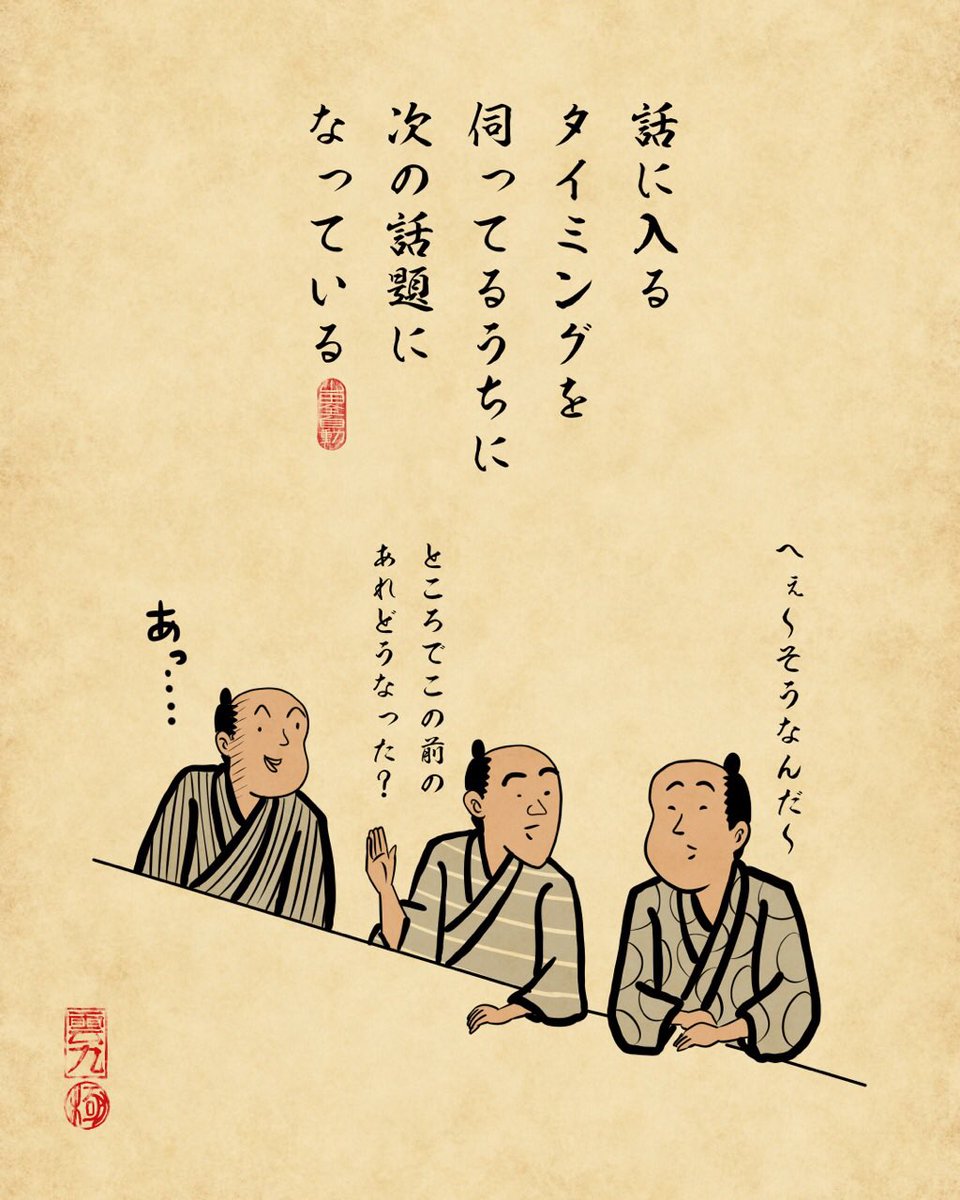 話に入る
タイミングを
伺ってるうちに
次の話題に
なっている
へぇ〜そうなんだ〜
ところでこの前の
あれどうなった?
あっ‥‥